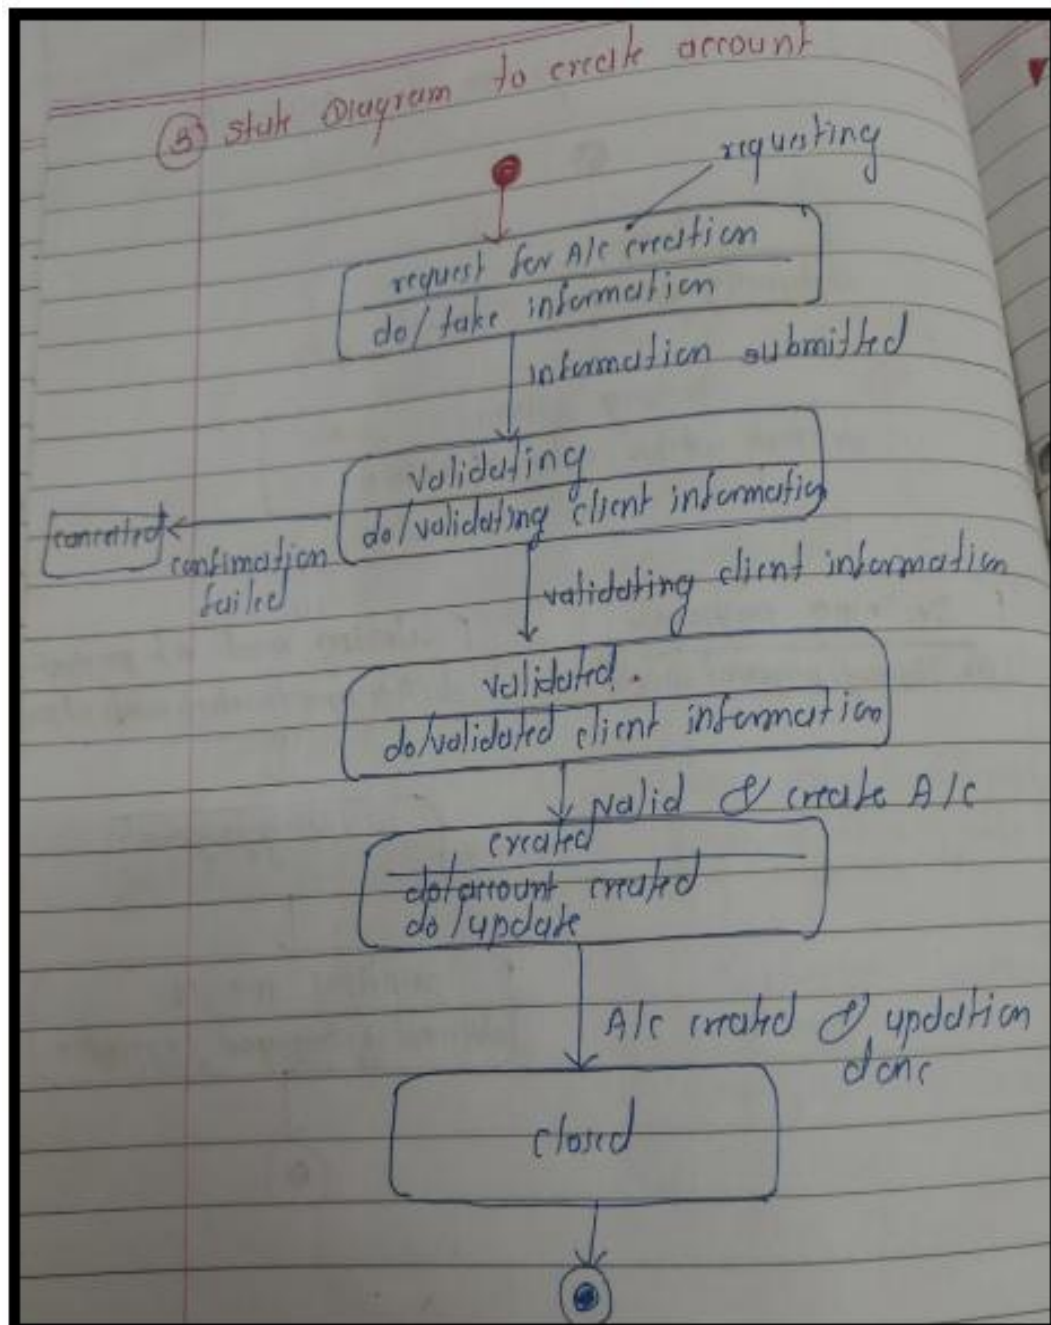 ③ State Diagram to create account
requesting
request for A/c creation
do/take information
information submitted
validating
do/validating client information
cancelled
confimation
failed
validating client information
validated.
do/validated client information
valid & create A/c
created
do/account created
do/update
A/c created & updation
done
closed